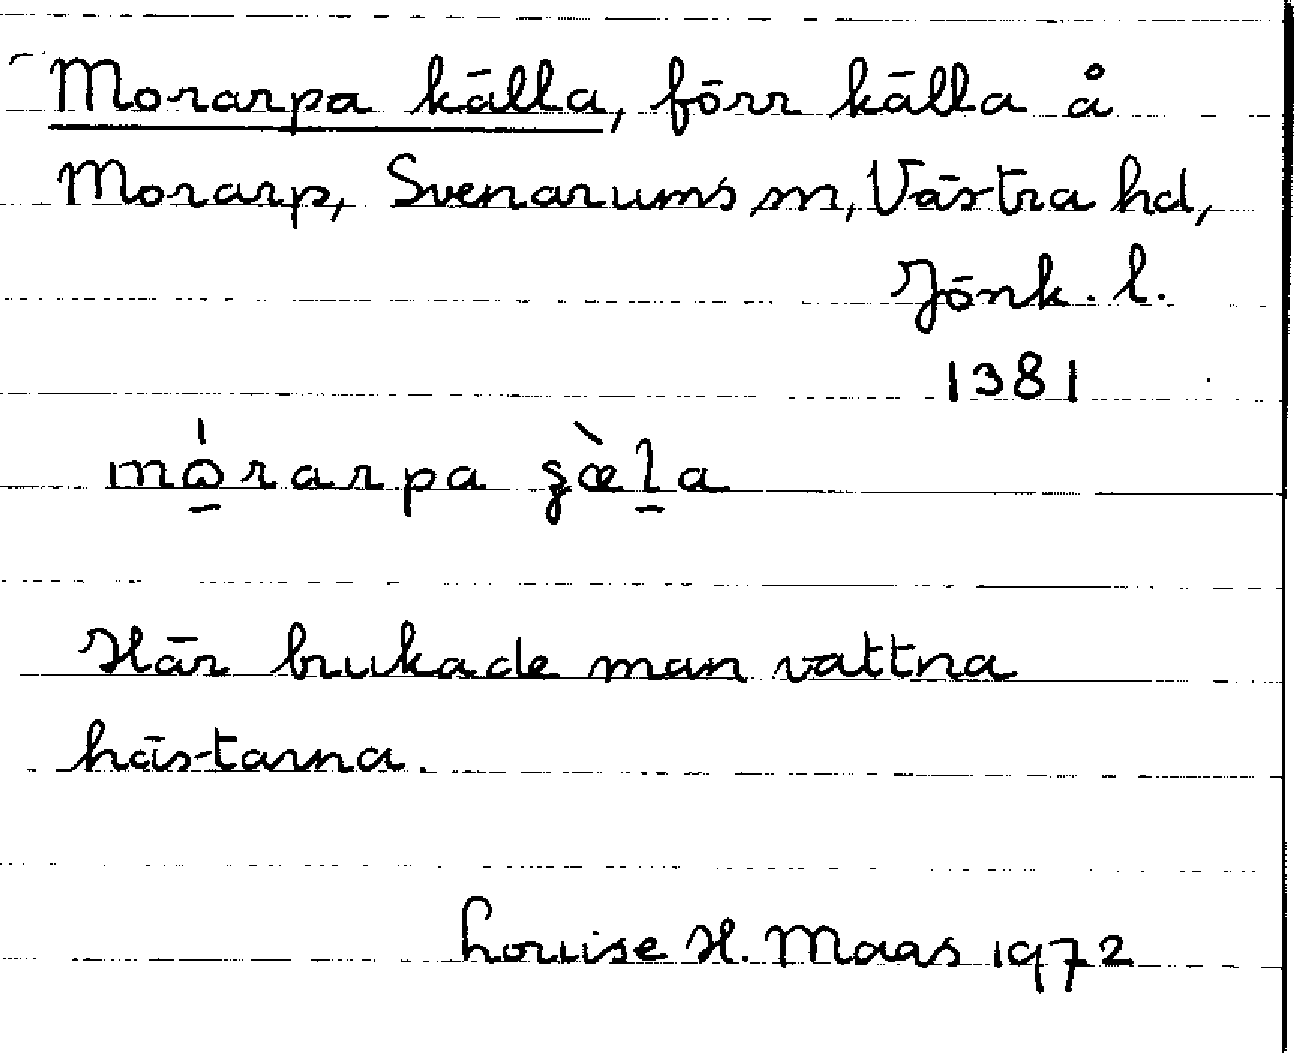 Morarpa källa, förr källa å
Morarp, Svenarums sn, Västra hd,
Jönk. l.
1381
Här brukade man vattna
hästarna.
Louise H. Maas 1972